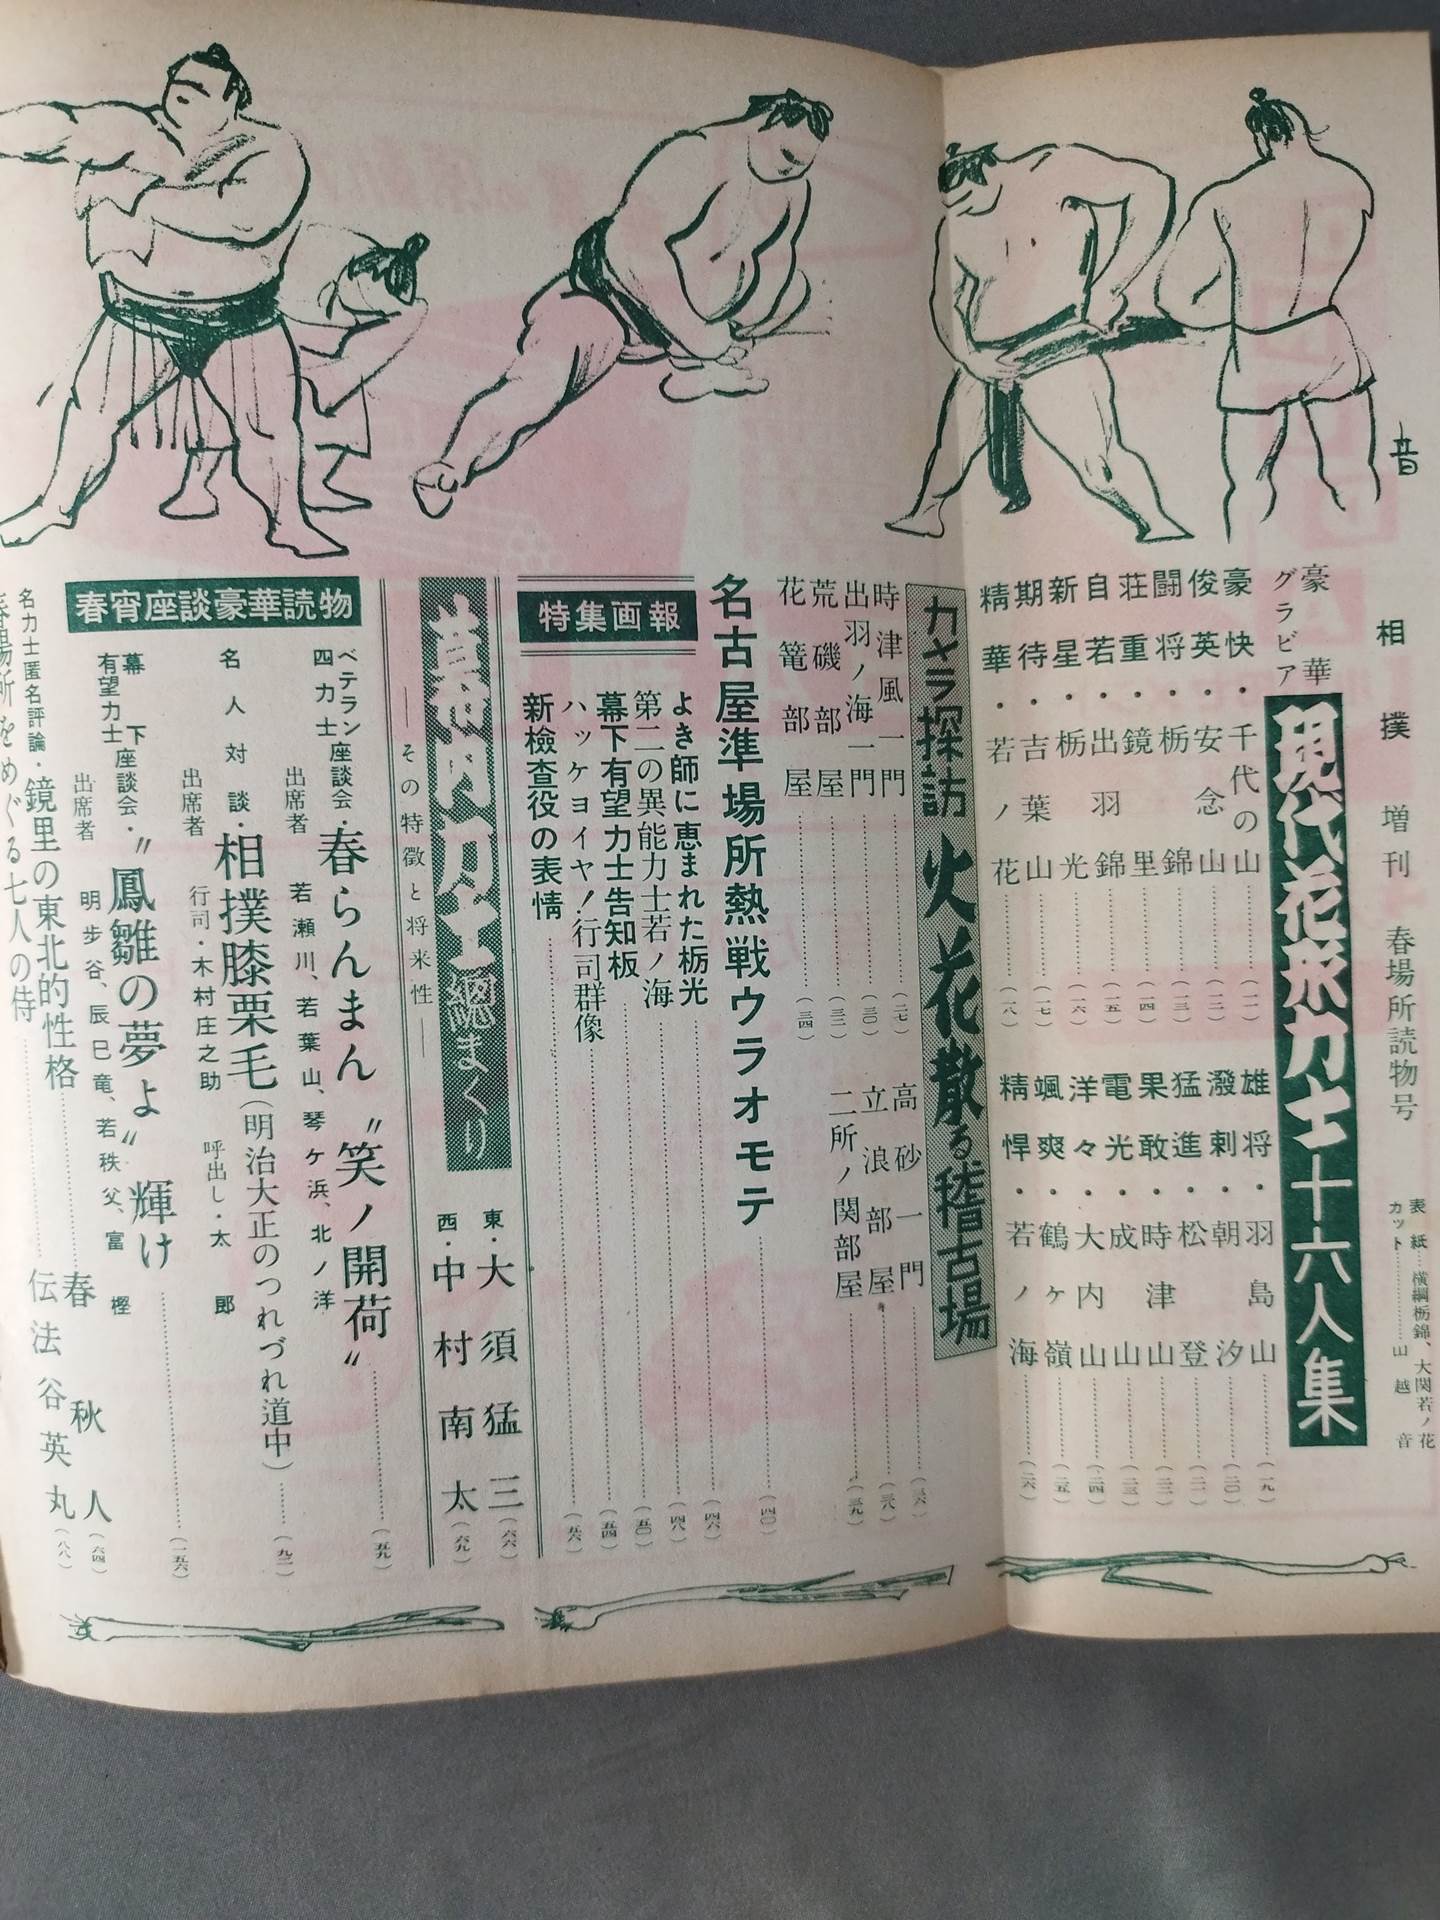 音
相撲 増刊 春場所読物号
表紙…横綱栃錦、大関若ノ花
カット…………山越音
豪華
グラビア
現代花形力士十六人集
豪快・千代の山……(一一)
俊英・安念山……(一二)
闘将・栃錦……(一三)
荘重・鏡里……(一四)
自若・出羽錦……(一五)
新星・栃光……(一六)
期待・吉葉山……(一七)
精華・若ノ花……(一八)
雄将・羽島山……(一九)
潑剌・朝汐……(二〇)
猛進・松登……(二一)
果敢・時津山……(二二)
電光・成山……(二三)
洋々・大内山……(二四)
颯爽・鶴ヶ嶺……(二五)
精悍・若ノ海……(二六)
カメラ探訪 火花散る稽古場
時津風一門……(二七)
出羽ノ海一門……(三〇)
荒磯部屋……(三二)
花籠部屋……(三四)
高砂一門……(三六)
立浪部屋……(三八)
二所ノ関部屋……(三九)
名古屋準場所熱戦ウラオモテ……(四〇)
特集画報
よき師に恵まれた栃光……(四六)
第二の異能力士若ノ海……(四八)
幕下有望力士告知板……(五〇)
ハッケヨイヤ!行司群像……(五四)
新検査役の表情……(五六)
幕内力士総まくり
―その特徴と将来性―
東・大須猛三(六六)
西・中村南太(六九)
春宵座談豪華読物
ベテラン四力士座談会・春らんまん〝笑ノ開荷〟……(五九)
出席者 若瀬川、若葉山、琴ヶ浜、北ノ洋
名人対談・相撲膝栗毛(明治大正のつれづれ道中)……(九二)
出席者 行司・木村庄之助 呼出し・太郎
幕下有望力士座談会・〝鳳雛の夢よ〟輝け……(一五六)
出席者 明歩谷、辰巳竜、若秩父、富樫
名力士匿名評論・鏡里の東北的性格……春秋人(六四)
春場所をめぐる七人の侍……伝法谷英丸(八八)